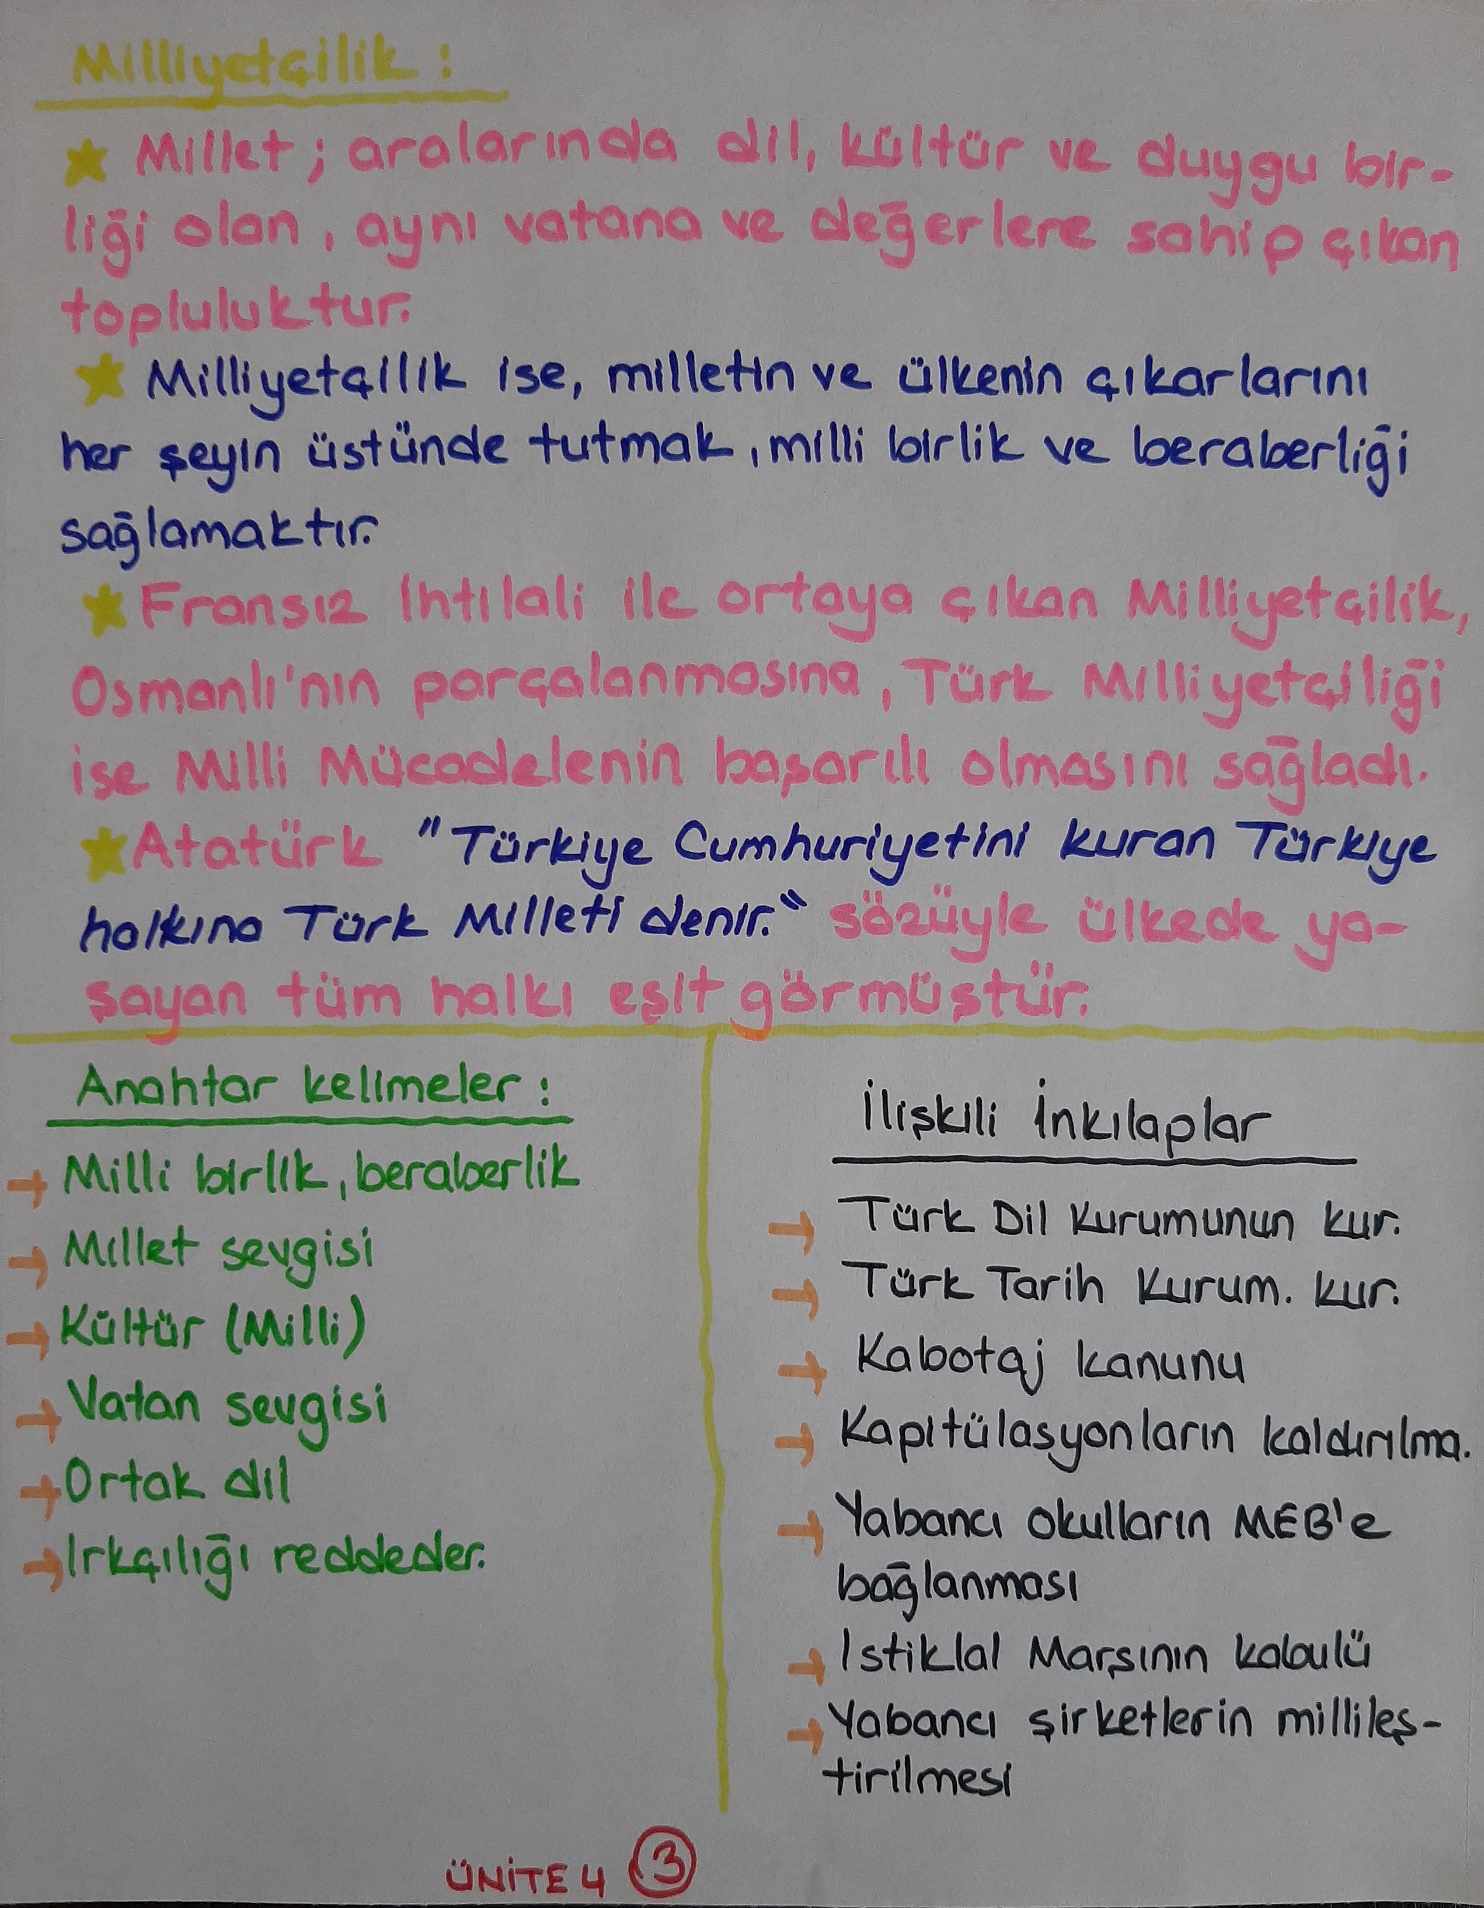 Milliyetçilik :
Millet; aralarında dil, kültür ve duygu bir-
liği olan, aynı vatana ve değerlere sahip çıkan
topluluktur.
Milliyetçilik ise, milletin ve ülkenin çıkarlarını
her şeyin üstünde tutmak, milli birlik ve beraberliği
sağlamaktır.
Fransız İhtilali ile ortaya çıkan Milliyetçilik,
Osmanlı'nın parçalanmasına, Türk Milliyetçiliği
ise Milli Mücadelenin başarılı olmasını sağladı.
Atatürk "Türkiye Cumhuriyetini kuran Türkiye
halkına Türk Milleti denir." sözüyle ülkede ya-
şayan tüm halkı eşit görmüştür.
Anahtar kelimeler :
→ Milli birlik, beraberlik
→ Millet sevgisi
→ Kültür (Milli)
→ Vatan sevgisi
→ Ortak dil
→ Irkçılığı reddeder.
İlişkili İnkılaplar
→ Türk Dil Kurumunun kur.
→ Türk Tarih Kurum. kur.
→ Kabotaj kanunu
→ Kapitülasyonların kaldırılma.
→ Yabancı okulların MEB'e
bağlanması
→ İstiklal Marşının kabulü
→ Yabancı şirketlerin millileş-
tirilmesi
ÜNİTE 4 3